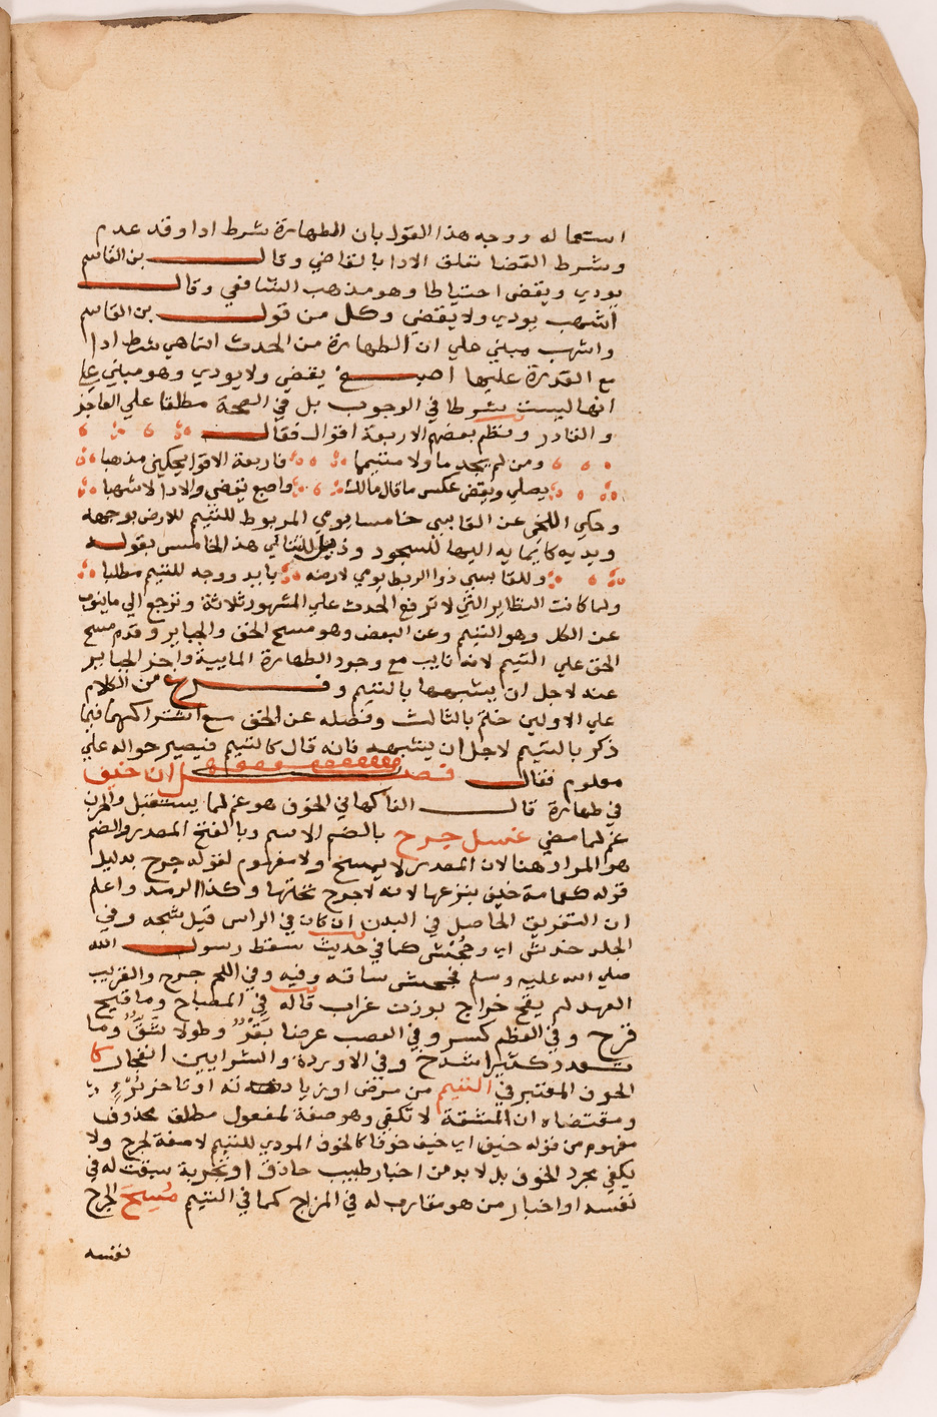 استعماله ووجه هذا القول بان الطهارة شرط ادا وقد عدم
وشرط القضا تعلق الادا بالقاضي وقال بن القاسم
يودي ويقضي احتياطا وهو مذهب الشافعي وقال
اشهب يودي ولا يقضي وكل من قول بن القاسم
واشهب مبني علي ان الطهارة من الحدث انما هي شرط ادا
مع القدرة عليها اصبغ يقضي ولا يودي وهو مبني علي
انها ليست بشرطا في الوجوب بل في الصحة مطلقا علي العاجز
والقادر ونظم بعضهم الاربعة اقوال فقال
ومن لم يجد ما ولا متيمما فاربعة الاقوا يحكين مذهبا
يصلي ويقض عكس ما قال مالك واصبغ يقضي والادا لاشهبا
وحكي اللخمي عن القابسي خامسا يومي المربوط للتيمم للارض بوجهه
ويديه كايمايه اليها للسجود وذيل التتائي هذا الخامس بقوله
وللقابسي ذو الربط يومي لارضه بايد ووجه للتيمم مطلبا
ولما كانت النظاير التي لا ترفع الحدث علي المشهور ثلاثة وترجع الي ما ينوب
عن الكل وهو التيمم وعن البعض وهو مسح الخف والجباير وقدم مسح
الخف علي التيمم لانه نايب مع وجود الطهارة المايية واخر الجباير
عنه لاجل ان يشبهها بالتيمم وفرغ من الكلام
علي الاولين ختم بالثالث وفصله عن الخف مع اشتراكهما فيما
ذكر بالتيمم لاجل ان يشبهه فانه قال كالتيمم فيصير حواله علي
معلوم فقال فصل ان خيف
في طهارة قال الفاكهاني الخوف هو غم لما يستقبل والحزن
غم لما مضي غسل جرح بالضم الاسم وبالفتح المصدر والضم
هو المراد هنا لان المصدر لا يمسح ولا مفهوم لقوله جرح بدليل
قوله كعمامة خيف بنزعها لانه لا جرح تحتها وكذا الرمد واعلم
ان التفريق الحاصل في البدن ان كان في الراس قيل شجه وفي
الجلد خدش اي وجُحْش كما في حديث سقط رسول الله
صلي الله عليه وسلم فجحش ساقه وفيه وفي اللحم جرح والقريب
العهد لم يقح خراج بوزن غراب قاله في المصباح وما قيح
قرح وفي العظم كسر وفي العصب عرضا بتر وطولا شَقّ وما
تعدد كثيرا شدخ وفي الاوردة والشرايين انفجار كا
لخوف المعتبر في التيمم من مرض او زيادته او تاخر بُرْءٍ
ومقتضاه ان المشقة لا تكفي وهو صفة لمفعول مطلق محذوف
مفهوم من قوله خيف اي خيف خوفا كالخوف المودي للتيمم لا صفة لجرح ولا
يكفي مجرد الخوف بل لا بد من اخبار طبيب حاذق او تجربة سبقت له في
نفسه او اخبار من هو مقارب له في المزاج كما في التيمم مُسِحَ الجرح
نفسه